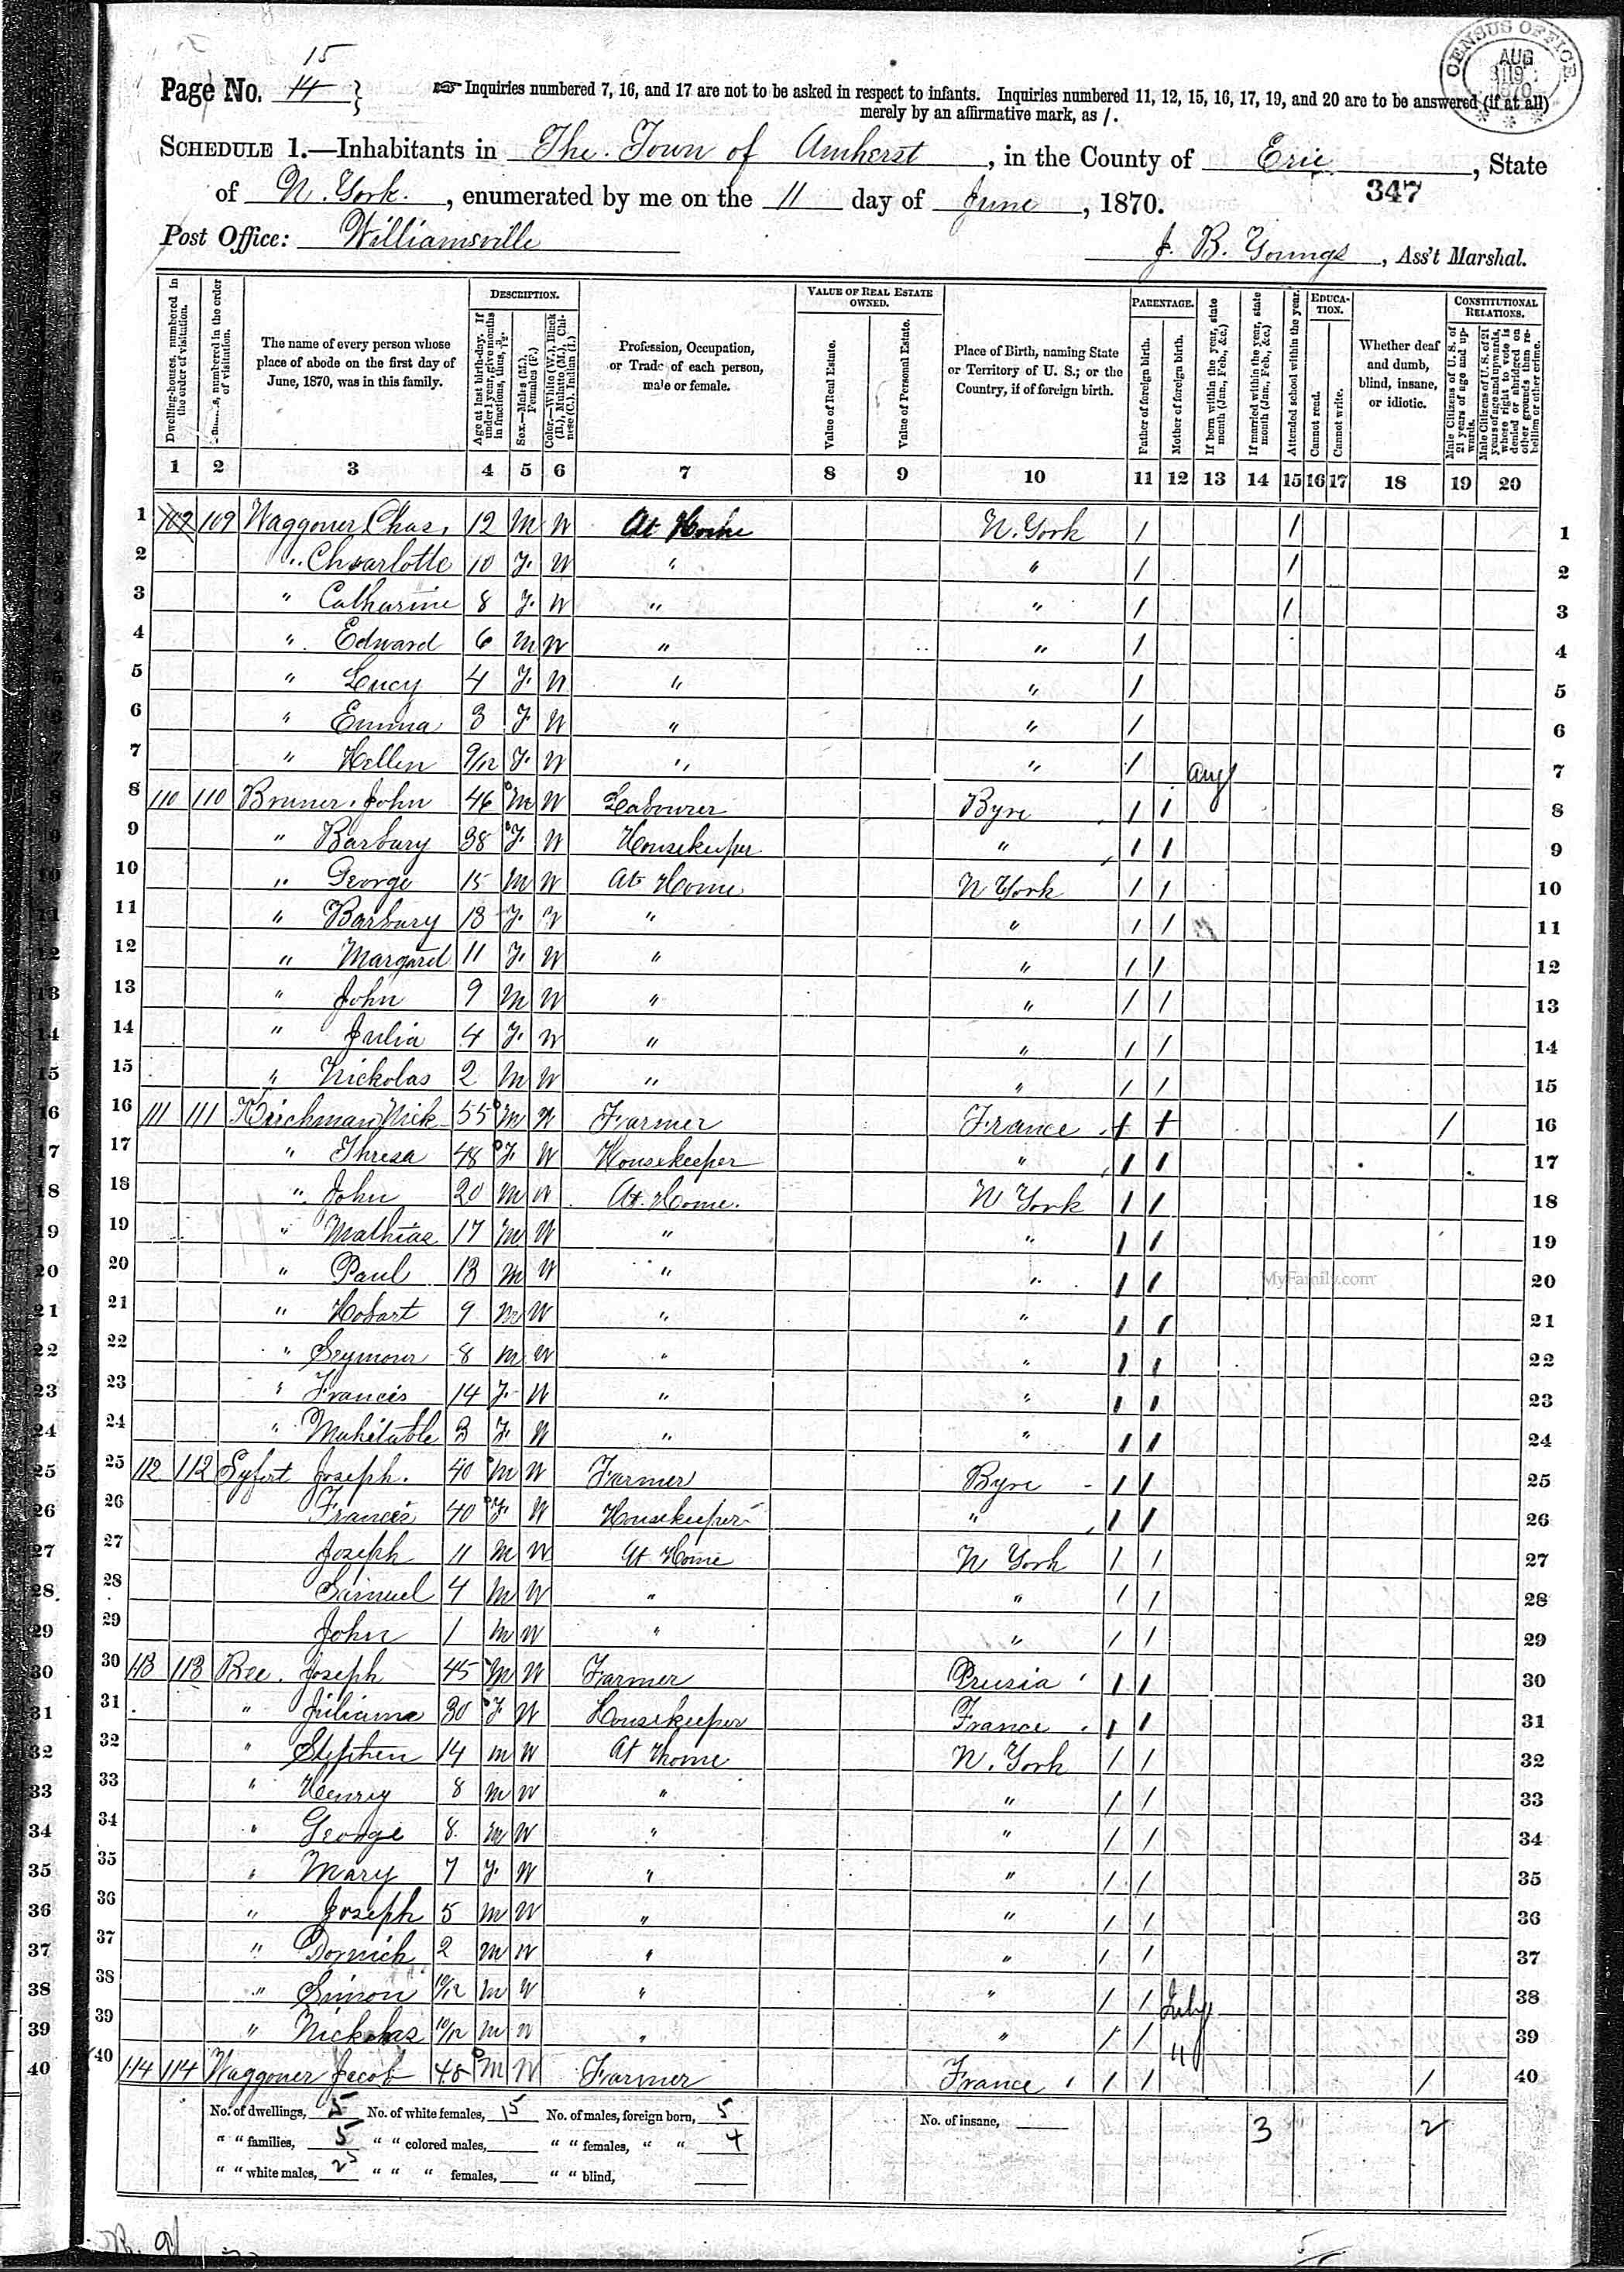 15
Page No. 14
Inquiries numbered 7, 16, and 17 are not to be asked in respect to infants. Inquiries numbered 11, 12, 15, 16, 17, 19, and 20 are to be answered (if at all)
merely by an affirmative mark, as /.
CENSUS OFFICE AUG 1870
SCHEDULE 1.—Inhabitants in The Town of Amherst, in the County of Erie, State
of N. York., enumerated by me on the 11 day of June, 1870.
347
Post Office: Williamsville
J. B. Youngs, Ass't Marshal.
Dwelling-houses, numbered in the order of visitation.
numbered in the order of visitation.
The name of every person whose place of abode on the first day of June, 1870, was in this family.
DESCRIPTION.
Age at last birth-day. If under 1 year, give months in fractions, thus, 3/12.
Sex.—Males (M.), Females (F.)
Color.—White (W.), Black (B.), Mulatto (M.), Chinese (C.), Indian (I.)
Profession, Occupation, or Trade of each person, male or female.
VALUE OF REAL ESTATE OWNED.
Value of Real Estate.
Value of Personal Estate.
Place of Birth, naming State or Territory of U. S.; or the Country, if of foreign birth.
PARENTAGE.
Father of foreign birth.
Mother of foreign birth.
If born within the year, state month (Jan., Feb., &c.)
If married within the year, state month (Jan., Feb., &c.)
Attended school within the year.
EDUCATION.
Cannot read.
Cannot write.
Whether deaf and dumb, blind, insane, or idiotic.
CONSTITUTIONAL RELATIONS.
Male Citizens of U. S. of 21 years of age and upwards.
Male Citizens of U. S. of 21 years of age and upwards, where right to vote is denied or abridged on other grounds than rebellion or other crime.
1 2 3 4 5 6 7 8 9 10 11 12 13 14 15 16 17 18 19 20
1 109 109 Waggoner Chas. 12 M W At Home N. York / / 1
2 " Charlotte 10 F. W " " / / 2
3 " Catharine 8 F. W " " / / 3
4 " Edward 6 M W " " / 4
5 " Lucy 4 F. W " " / 5
6 " Emma 3 F W " " / 6
7 " Hellen 9/12 F. W " " / Aug 7
8 110 110 Bruner, John 46 M W Labourer Byre / / 8
9 " Barbury 38 F. W Housekeeper " / / 9
10 " George 15 M W At Home N York / / 10
11 " Barbury 13 F. W " " / / 11
12 " Margaret 11 F. W " " / / 12
13 " John 9 M W " " / / 13
14 " Julia 4 F. W " " / / 14
15 " Nickolas 2 M W " " / / 15
16 111 111 Kirchman Nick 55 M W Farmer France / / / 16
17 " Thresa 48 F. W Housekeeper " / / 17
18 " John 20 M W At Home. N York / / 18
19 " Mathias 17 M W " " / / 19
20 " Paul 13 M W " " / / 20
MyFamily.com
21 " Hobart 9 M W " " / / 21
22 " Seymour 8 M W " " / / 22
23 " Francis 14 F. W " " / / 23
24 " Mahitable 3 F. W " " / / 24
25 112 112 Syfert Joseph. 40 M W Farmer Byre / / 25
26 Francis 40 F. W Housekeeper " / / 26
27 Joseph 11 M W At Home N York / / 27
28 Samuel 4 M W " " / / 28
29 John 1 M W " " / / 29
30 113 113 Bee. Joseph 45 M W Farmer Prusia / / 30
31 " Juliana 30 F W Housekeeper France / / 31
32 " Stephen 14 M W At Home N. York / / 32
33 " Henry 8 M W " " / / 33
34 " George 8. M W " " / / 34
35 " Mary 7 F. W " " / / 35
36 " Joseph 5 M W " " / / 36
37 " Dornick 2 M W " " / / 37
38 " Simon 10/12 M W " " / / July 38
39 " Nickolas 10/12 M W " " / / " 39
40 114 114 Waggoner Jacob 48 M W Farmer France / / / 40
No. of dwellings, 5 No. of white females, 15 No. of males, foreign born, 5 No. of insane, 3 2
" " families, 5 " " colored males, " " females, " " 4
" " white males, 25 " " " females, " " blind,